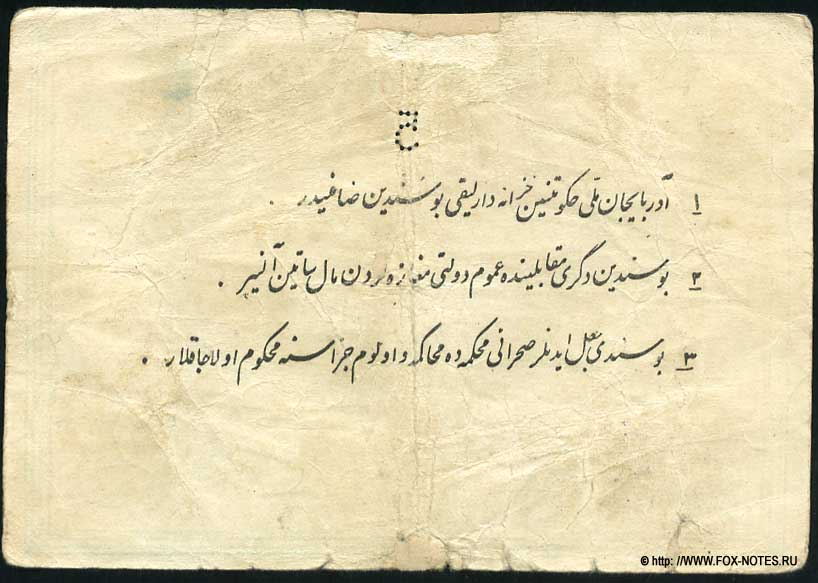 ۱ آذربایجان ملّی حکومتنین خزانه دارلیقی بو سندین ضامنیدر .
۲ بو سندین دگری مقابلینده عموم دولتی مغازه لردن مال ساتین آلنیر .
۳ بو سندی جعل ایدنلر صحرائی محکمه ده محاکمه و اولوم جزاسنه محکوم اولاجاقلار .
© http: //WWW.FOX-NOTES.RU